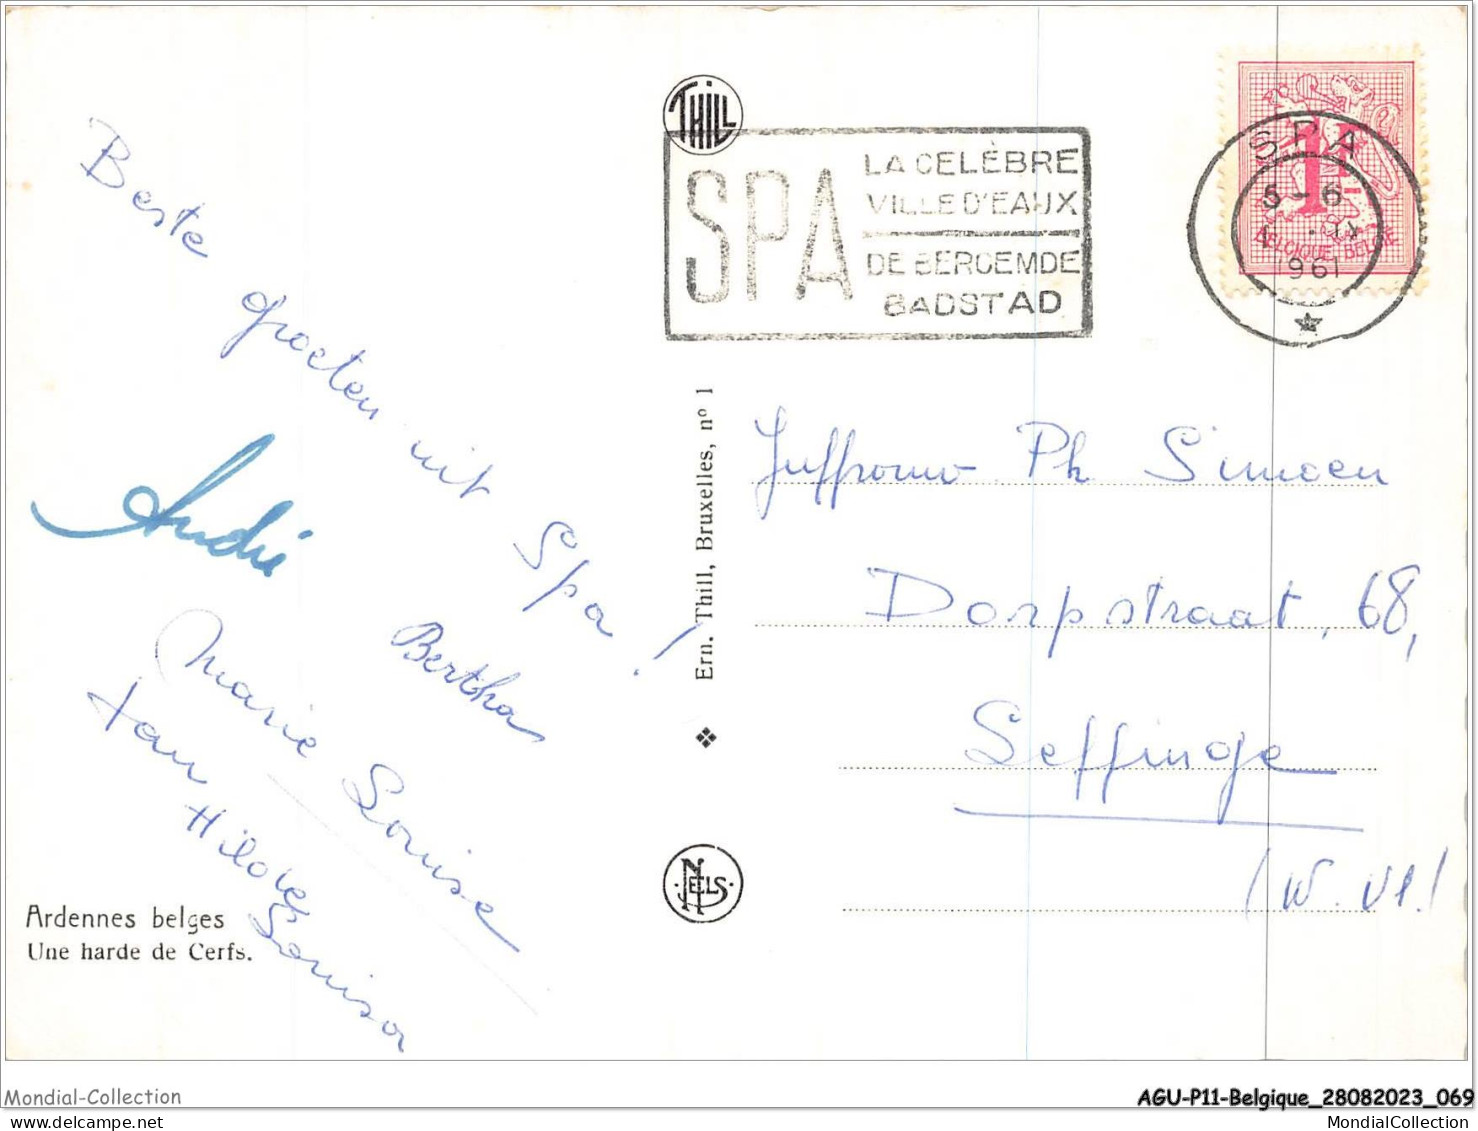 Beste groeten uit Spa!
André
Bertha
Marie Louise
Hilde
Louisa
Ardennes belges
Une harde de Cerfs.
THILL
SPA
LA CELÈBRE
VILLE D'EAUX
DE BEROEMDE
BADSTAD
SPA
5-6
1961
1F
BELGIQUE-BELGIE
Ern. Thill, Bruxelles, nº 1
NELS
Juffrouw Ph Simoen
Dorpstraat, 68,
Leffinge
(W. Vl.)
Mondial-Collection
AGU-P11-Belgique_28082023_069
MondialCollection